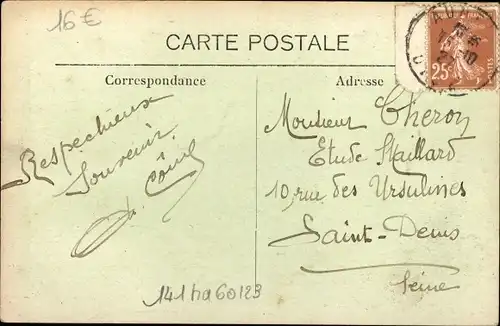 16 €
CARTE POSTALE
Correspondance
Adresse
25c
Respectueux
Souvenir
Monsieur Cheron
Etude Maillard
10, rue des Ursulines
Saint-Denis
Seine
141ha60123